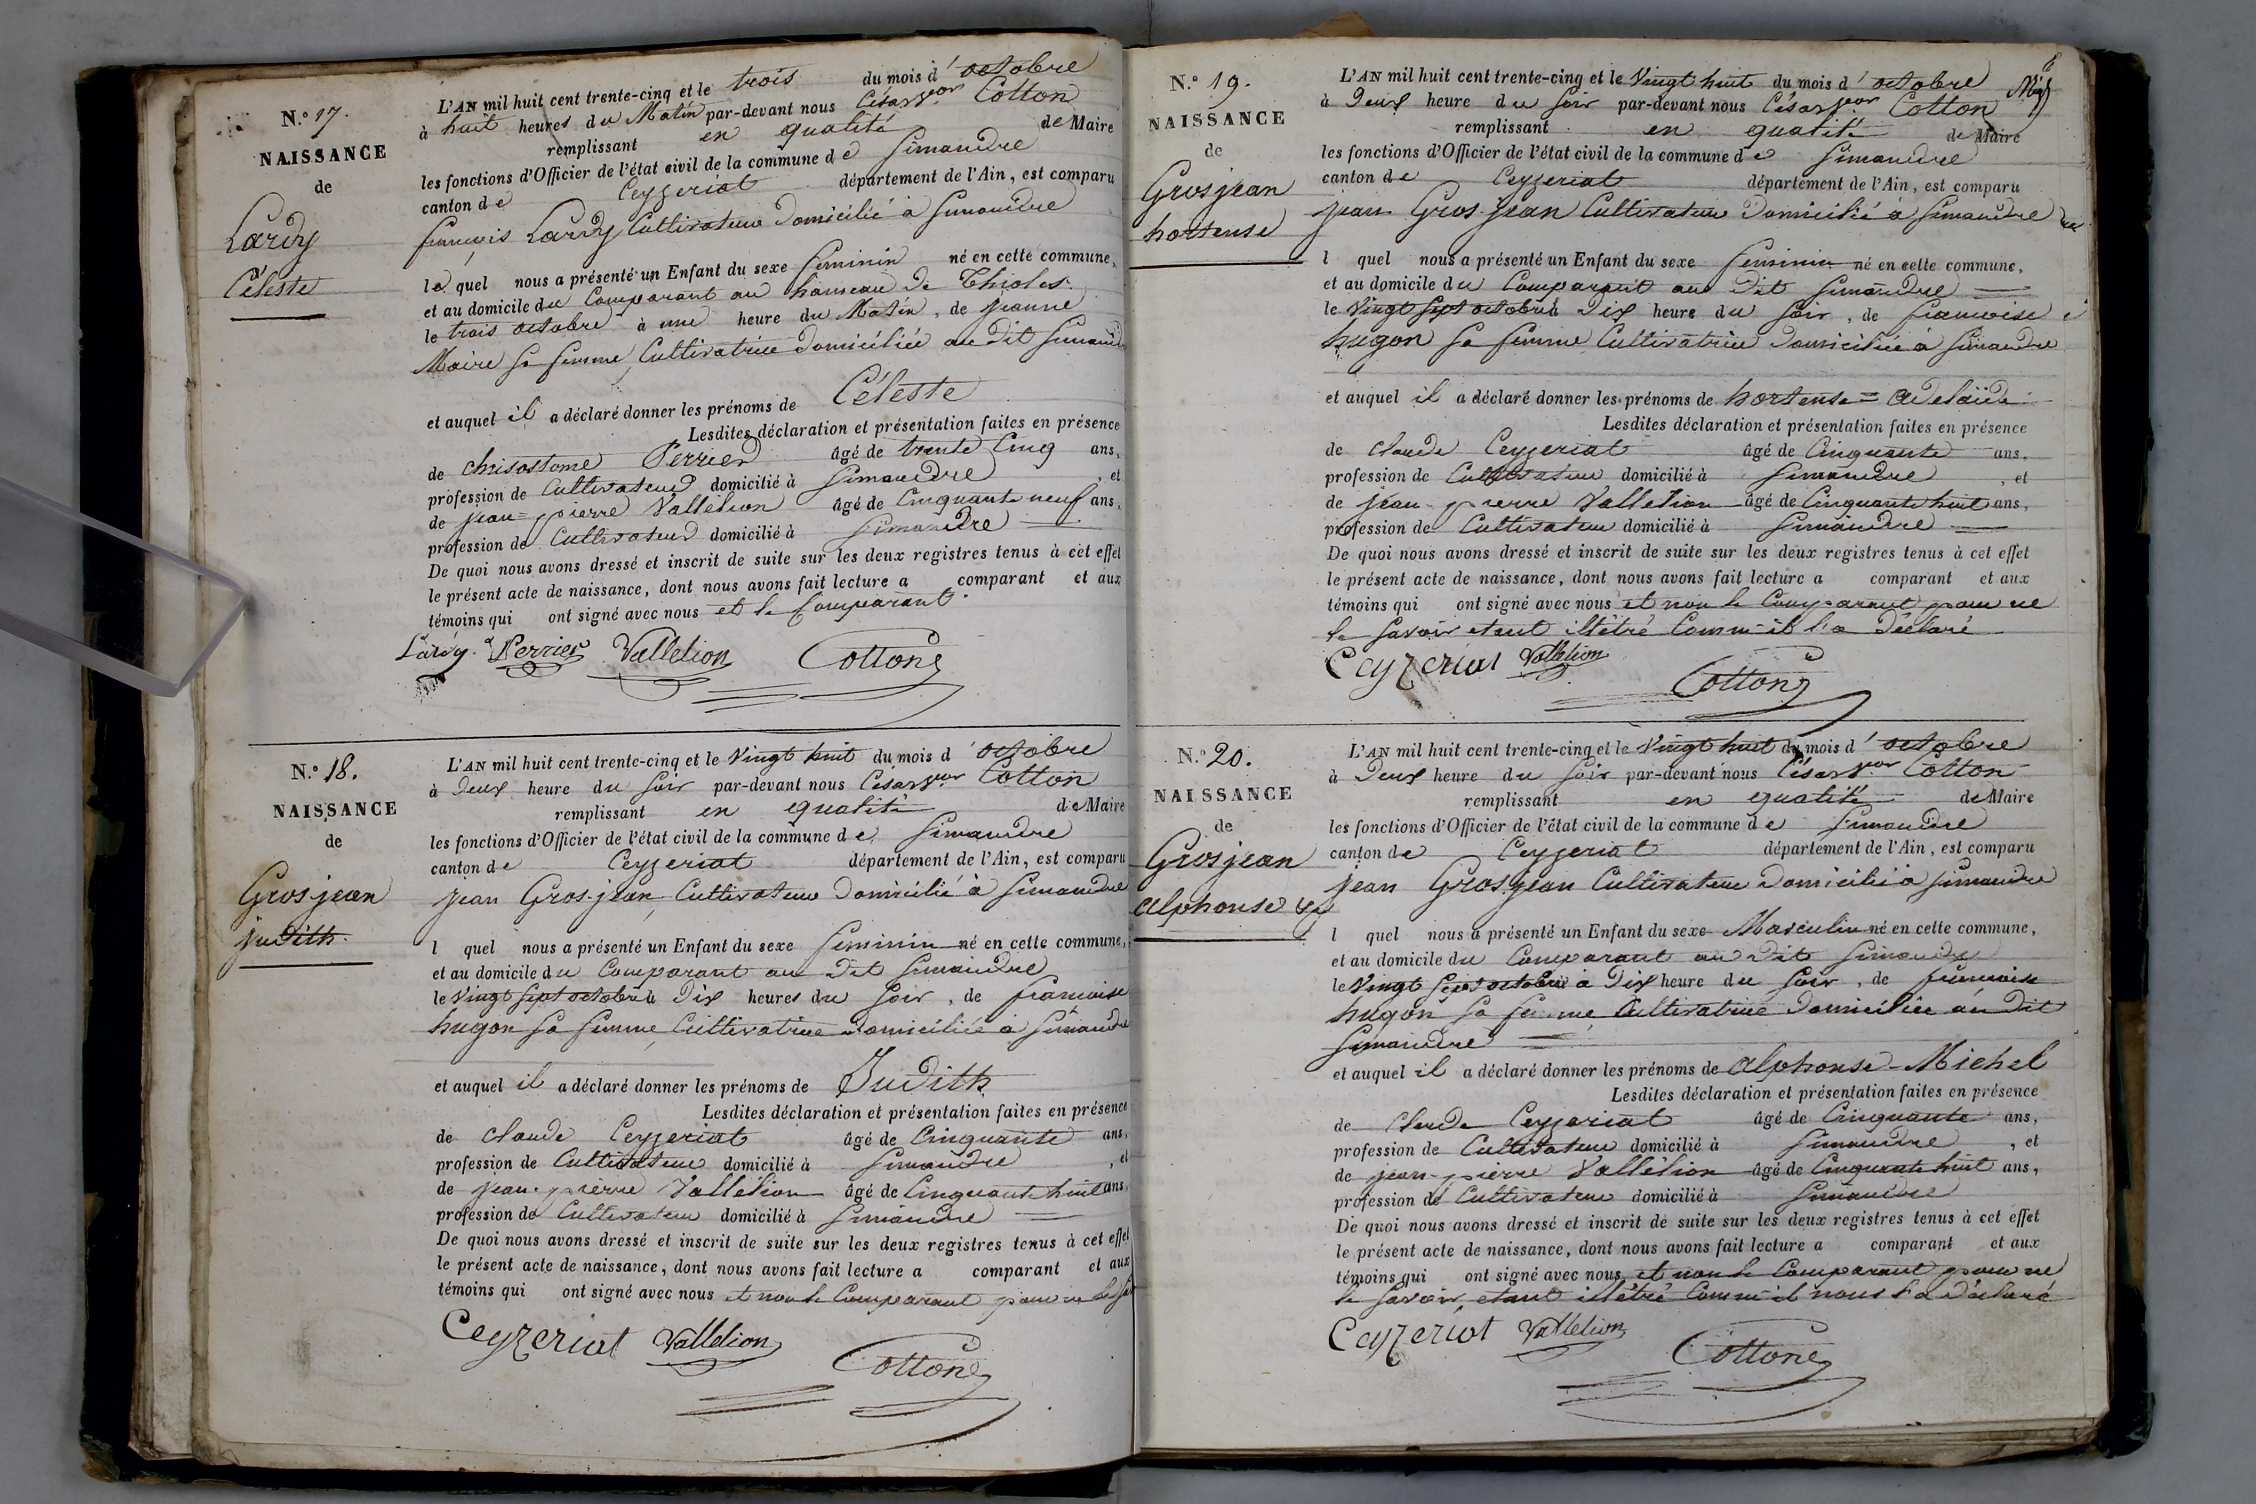 N.° 17.
NAISSANCE
de
Lardy
Céleste
L'AN mil huit cent trente-cinq et le trois du mois d'octobre
à huit heures du Matin par-devant nous César Cotton
remplissant en qualité de Maire
les fonctions d'Officier de l'état civil de la commune de Simandre
canton de Ceyzeriat département de l'Ain, est comparu
françois Lardy Cultivateur domicilié à Simandre
lequel nous a présenté un Enfant du sexe feminin né en cette commune,
et au domicile du Comparant au hameau de Thioles
le trois octobre à une heure du Matin, de jeanne
Maire sa femme, Cultivatrice domiciliée au dit Simandre
et auquel il a déclaré donner les prénoms de Céleste
Lesdites déclaration et présentation faites en présence
de chrisostome Perrier âgé de trente Cinq ans,
profession de Cultivateur domicilié à Simandre, et
de jean=pierre Vallelion âgé de Cinquante neuf ans,
profession de Cultivateur domicilié à Simandre
De quoi nous avons dressé et inscrit de suite sur les deux registres tenus à cet effet
le présent acte de naissance, dont nous avons fait lecture a comparant et aux
témoins qui ont signé avec nous et le Comparant.
Lardy Perrier Vallelion Cotton
N.° 18.
NAISSANCE
de
Grosjean
judith.
L'AN mil huit cent trente-cinq et le Vingt huit du mois d'octobre
à Deux heure du soir par-devant nous César Cotton
remplissant en qualité de Maire
les fonctions d'Officier de l'état civil de la commune de Simandre
canton de Ceyzeriat département de l'Ain, est comparu
jean Gros-jean, Cultivateur domicilié à Simandre
l quel nous a présenté un Enfant du sexe feminin né en cette commune,
et au domicile du Comparant au Dit Simandre
le Vingt sept octobre à Dix heures du soir, de francoise
hugon sa femme, Cultivatrice domiciliée à Simandre
et auquel il a déclaré donner les prénoms de Judith
Lesdites déclaration et présentation faites en présence
de claude Ceyzeriat âgé de Cinquante ans,
profession de Cultivateur domicilié à Simandre, et
de jean-pierre Vallelion âgé de Cinquante huit ans,
profession de Cultivateur domicilié à Simandre
De quoi nous avons dressé et inscrit de suite sur les deux registres tenus à cet effet
le présent acte de naissance, dont nous avons fait lecture a comparant et aux
témoins qui ont signé avec nous et non le Comparant pour ne
Ceyzeriat Vallelion
Cotton
N.° 19.
NAISSANCE
de
Grosjean
hortense
L'AN mil huit cent trente-cinq et le Vingt huit du mois d'octobre
à Deux heure du soir par-devant nous César Cotton
remplissant en qualité de Maire
les fonctions d'Officier de l'état civil de la commune de Simandre
canton de Ceyzeriat département de l'Ain, est comparu
jean Gros-jean Cultivateur Domicilié à Simandre
l quel nous a présenté un Enfant du sexe feminin né en cette commune,
et au domicile du Comparant au Dit Simandre
le Vingt sept octobre à Dix heure du soir, de francoise
hugon sa femme Cultivatrice domiciliée à Simandre
et auquel il a déclaré donner les prénoms de hortense=adelaïde
Lesdites déclaration et présentation faites en présence
de claude Ceyzeriat âgé de Cinquante ans,
profession de Cultivateur domicilié à Simandre, et
de jean-pierre Vallelion âgé de Cinquante huit ans,
profession de Cultivateur domicilié à Simandre
De quoi nous avons dressé et inscrit de suite sur les deux registres tenus à cet effet
le présent acte de naissance, dont nous avons fait lecture a comparant et aux
témoins qui ont signé avec nous et non le Comparant pour ne
le savoir etant illétré Comm-il l'a Déclaré
Ceyzeriat Vallelion
Cotton
N.° 20.
NAISSANCE
de
Grosjean
alphonse
L'AN mil huit cent trente-cinq et le Vingt huit du mois d'octobre
à Deux heure du soir par-devant nous César Cotton
remplissant en qualité de Maire
les fonctions d'Officier de l'état civil de la commune de Simandre
canton de Ceyzeriat département de l'Ain, est comparu
jean Gros-jean Cultivateur domicilié à Simandre
l quel nous a présenté un Enfant du sexe Masculin né en cette commune,
et au domicile du Comparant au Dit Simandre
le Vingt sept octobre à Dix heure du soir, de francoise
hugon sa femme Cultivatrice domiciliée au Dit
Simandre
et auquel il a déclaré donner les prénoms de alphonse-Michel
Lesdites déclaration et présentation faites en présence
de claude Ceyzeriat âgé de Cinquante ans,
profession de Cultivateur domicilié à Simandre, et
de jean-pierre Vallelion âgé de Cinquante huit ans,
profession de Cultivateur domicilié à Simandre
De quoi nous avons dressé et inscrit de suite sur les deux registres tenus à cet effet
le présent acte de naissance, dont nous avons fait lecture a comparant et aux
témoins qui ont signé avec nous et non le Comparant pour ne
le savoir, etant illétré Comm-il nous l'a Déclaré
Ceyzeriat Vallelion
Cotton